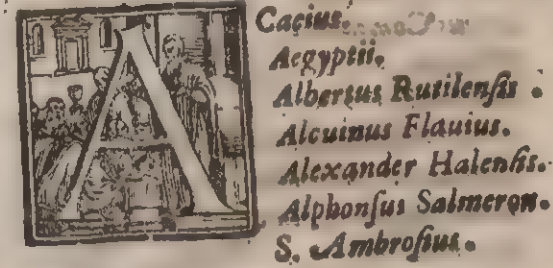 ACacius.
Aegyptii.
Albertus Rutilenſis.
Alcuinus Flauius.
Alexander Halenſis.
Alphonſus Salmeron.
S. Ambroſius.